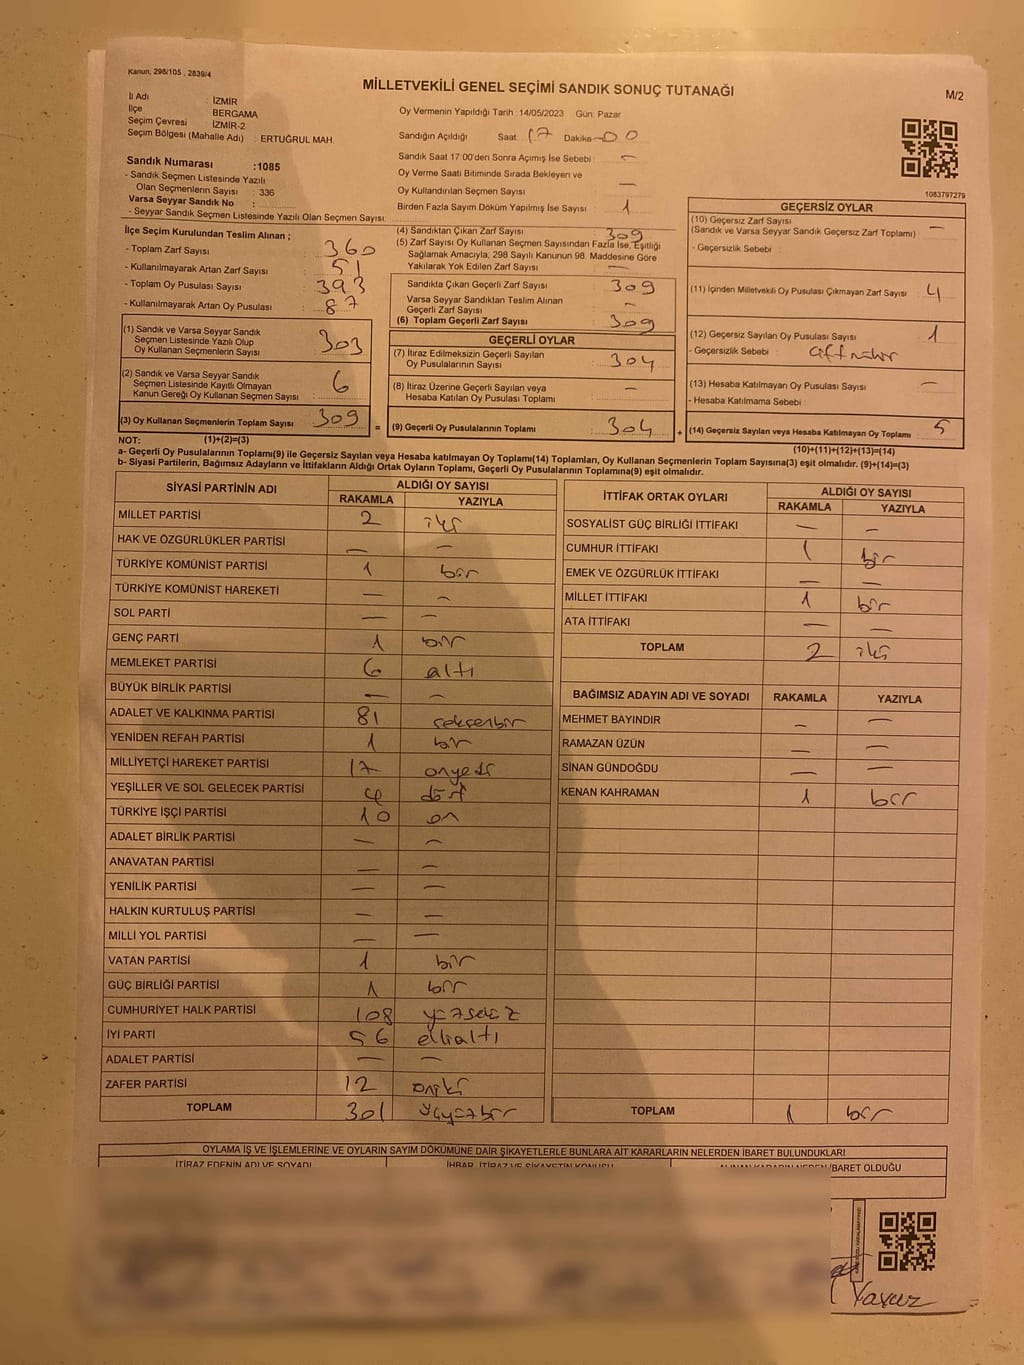 Kanun; 298/105 , 2839/4
MİLLETVEKİLİ GENEL SEÇİMİ SANDIK SONUÇ TUTANAĞI
M/2
İli Adı : İZMİR
İlçe BERGAMA
Seçim Çevresi İZMİR-2
Seçim Bölgesi (Mahalle Adı) : ERTUĞRUL MAH.
Oy Vermenin Yapıldığı Tarih :14/05/2023 Gün: Pazar
Sandığın Açıldığı Saat: 17 Dakika 00
Sandık Saat 17:00'den Sonra Açılmış İse Sebebi : —
Oy Verme Saati Bitiminde Sırada Bekleyen ve
Oy Kullandırılan Seçmen Sayısı —
Birden Fazla Sayım Döküm Yapılmış İse Sayısı : 1
1083797279
Sandık Numarası :1085
- Sandık Seçmen Listesinde Yazılı
Olan Seçmenlerin Sayısı : 336
Varsa Seyyar Sandık No :
- Seyyar Sandık Seçmen Listesinde Yazılı Olan Seçmen Sayısı:
İlçe Seçim Kurulundan Teslim Alınan ;
- Toplam Zarf Sayısı : 360
- Kullanılmayarak Artan Zarf Sayısı : 51
- Toplam Oy Pusulası Sayısı : 393
- Kullanılmayarak Artan Oy Pusulası : 87
(1) Sandık ve Varsa Seyyar Sandık
Seçmen Listesinde Yazılı Olup
Oy Kullanan Seçmenlerin Sayısı : 303
(2) Sandık ve Varsa Seyyar Sandık
Seçmen Listesinde Kayıtlı Olmayan
Kanun Gereği Oy Kullanan Seçmen Sayısı : 6
(3) Oy Kullanan Seçmenlerin Toplam Sayısı : 309 =
(4) Sandıktan Çıkan Zarf Sayısı : 309
(5) Zarf Sayısı Oy Kullanan Seçmen Sayısından Fazla İse, Eşitliği
Sağlamak Amacıyla; 298 Sayılı Kanunun 98. Maddesine Göre
Yakılarak Yok Edilen Zarf Sayısı : —
Sandıkta Çıkan Geçerli Zarf Sayısı : 309
Varsa Seyyar Sandıktan Teslim Alınan
Geçerli Zarf Sayısı : —
(6) Toplam Geçerli Zarf Sayısı : 309
GEÇERLİ OYLAR
(7) İtiraz Edilmeksizin Geçerli Sayılan
Oy Pusulalarının Sayısı : 304
(8) İtiraz Üzerine Geçerli Sayılan veya
Hesaba Katılan Oy Pusulası Toplamı : —
(9) Geçerli Oy Pusulalarının Toplamı : 304 +
GEÇERSİZ OYLAR
(10) Geçersiz Zarf Sayısı
(Sandık ve Varsa Seyyar Sandık Geçersiz Zarf Toplamı) : —
- Geçersizlik Sebebi :
(11) İçinden Milletvekili Oy Pusulası Çıkmayan Zarf Sayısı : 4
(12) Geçersiz Sayılan Oy Pusulası Sayısı : 1
- Geçersizlik Sebebi :
(13) Hesaba Katılmayan Oy Pusulası Sayısı : —
- Hesaba Katılmama Sebebi :
(14) Geçersiz Sayılan veya Hesaba Katılmayan Oy Toplamı : 5
NOT: (1)+(2)=(3)
(10)+(11)+(12)+(13)=(14)
a- Geçerli Oy Pusulalarının Toplamı(9) ile Geçersiz Sayılan veya Hesaba Katılmayan Oy Toplamı(14) Toplamları, Oy Kullanan Seçmenlerin Toplam Sayısına(3) eşit olmalıdır. (9)+(14)=(3)
b- Siyasi Partilerin, Bağımsız Adayların ve İttifakların Aldığı Ortak Oyların Toplamı, Geçerli Oy Pusulalarının Toplamına(9) eşit olmalıdır.
SİYASİ PARTİNİN ADI ALDIĞI OY SAYISI
RAKAMLA YAZIYLA
MİLLET PARTİSİ 2 iki
HAK VE ÖZGÜRLÜKLER PARTİSİ — —
TÜRKİYE KOMÜNİST PARTİSİ 1 bir
TÜRKİYE KOMÜNİST HAREKETİ — —
SOL PARTİ — —
GENÇ PARTİ 1 bir
MEMLEKET PARTİSİ 6 altı
BÜYÜK BİRLİK PARTİSİ — —
ADALET VE KALKINMA PARTİSİ 81 seksenbir
YENİDEN REFAH PARTİSİ 1 bir
MİLLİYETÇİ HAREKET PARTİSİ 17 onyedi
YEŞİLLER VE SOL GELECEK PARTİSİ 4 dört
TÜRKİYE İŞÇİ PARTİSİ 10 on
ADALET BİRLİK PARTİSİ — —
ANAVATAN PARTİSİ — —
YENİLİK PARTİSİ — —
HALKIN KURTULUŞ PARTİSİ — —
MİLLİ YOL PARTİSİ — —
VATAN PARTİSİ 1 bir
GÜÇ BİRLİĞİ PARTİSİ 1 bir
CUMHURİYET HALK PARTİSİ 108 yüzsekiz
İYİ PARTİ 56 ellialtı
ADALET PARTİSİ — —
ZAFER PARTİSİ 12 oniki
TOPLAM 301 üçyüzbir
İTTİFAK ORTAK OYLARI ALDIĞI OY SAYISI
RAKAMLA YAZIYLA
SOSYALİST GÜÇ BİRLİĞİ İTTİFAKI — —
CUMHUR İTTİFAKI 1 bir
EMEK VE ÖZGÜRLÜK İTTİFAKI — —
MİLLET İTTİFAKI 1 bir
ATA İTTİFAKI — —
TOPLAM 2 iki
BAĞIMSIZ ADAYIN ADI VE SOYADI RAKAMLA YAZIYLA
MEHMET BAYINDIR — —
RAMAZAN ÜZÜN — —
SİNAN GÜNDOĞDU — —
KENAN KAHRAMAN 1 bir
TOPLAM 1 bir
OYLAMA İŞ VE İŞLEMLERİNE VE OYLARIN SAYIM DÖKÜMÜNE DAİR ŞİKAYETLERLE BUNLARA AİT KARARLARIN NELERDEN İBARET BULUNDUKLARI
İTİRAZ EDENİN ADI VE SOYADI İHBAR, İTİRAZ VE ŞİKAYETİN KONUSU ALINAN KARARIN NEDEN İBARET OLDUĞU
Yavuz